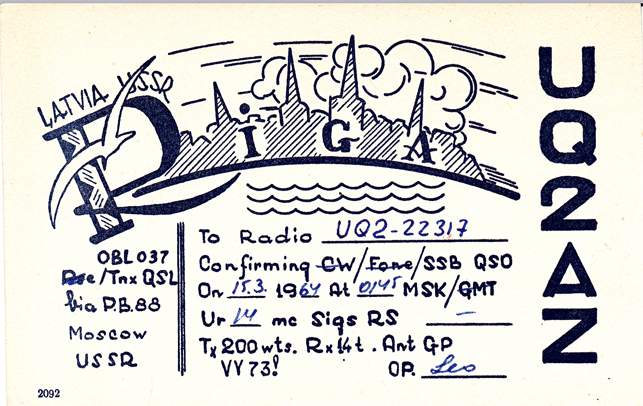 LATVIA USSR
RIGA
UQ2AZ
OBL037
Pse/Tnx QSL
Via P.B.88
Moscow
USSR
To Radio UQ2-22317
Confirming CW/Fone/SSB QSO
On 15.3. 1964 At 0145 MSK/GMT
Ur 14 mc Sigs RS –
Tx 200wts. Rx 14t. Ant GP
VY 73! OP. Leo
2092